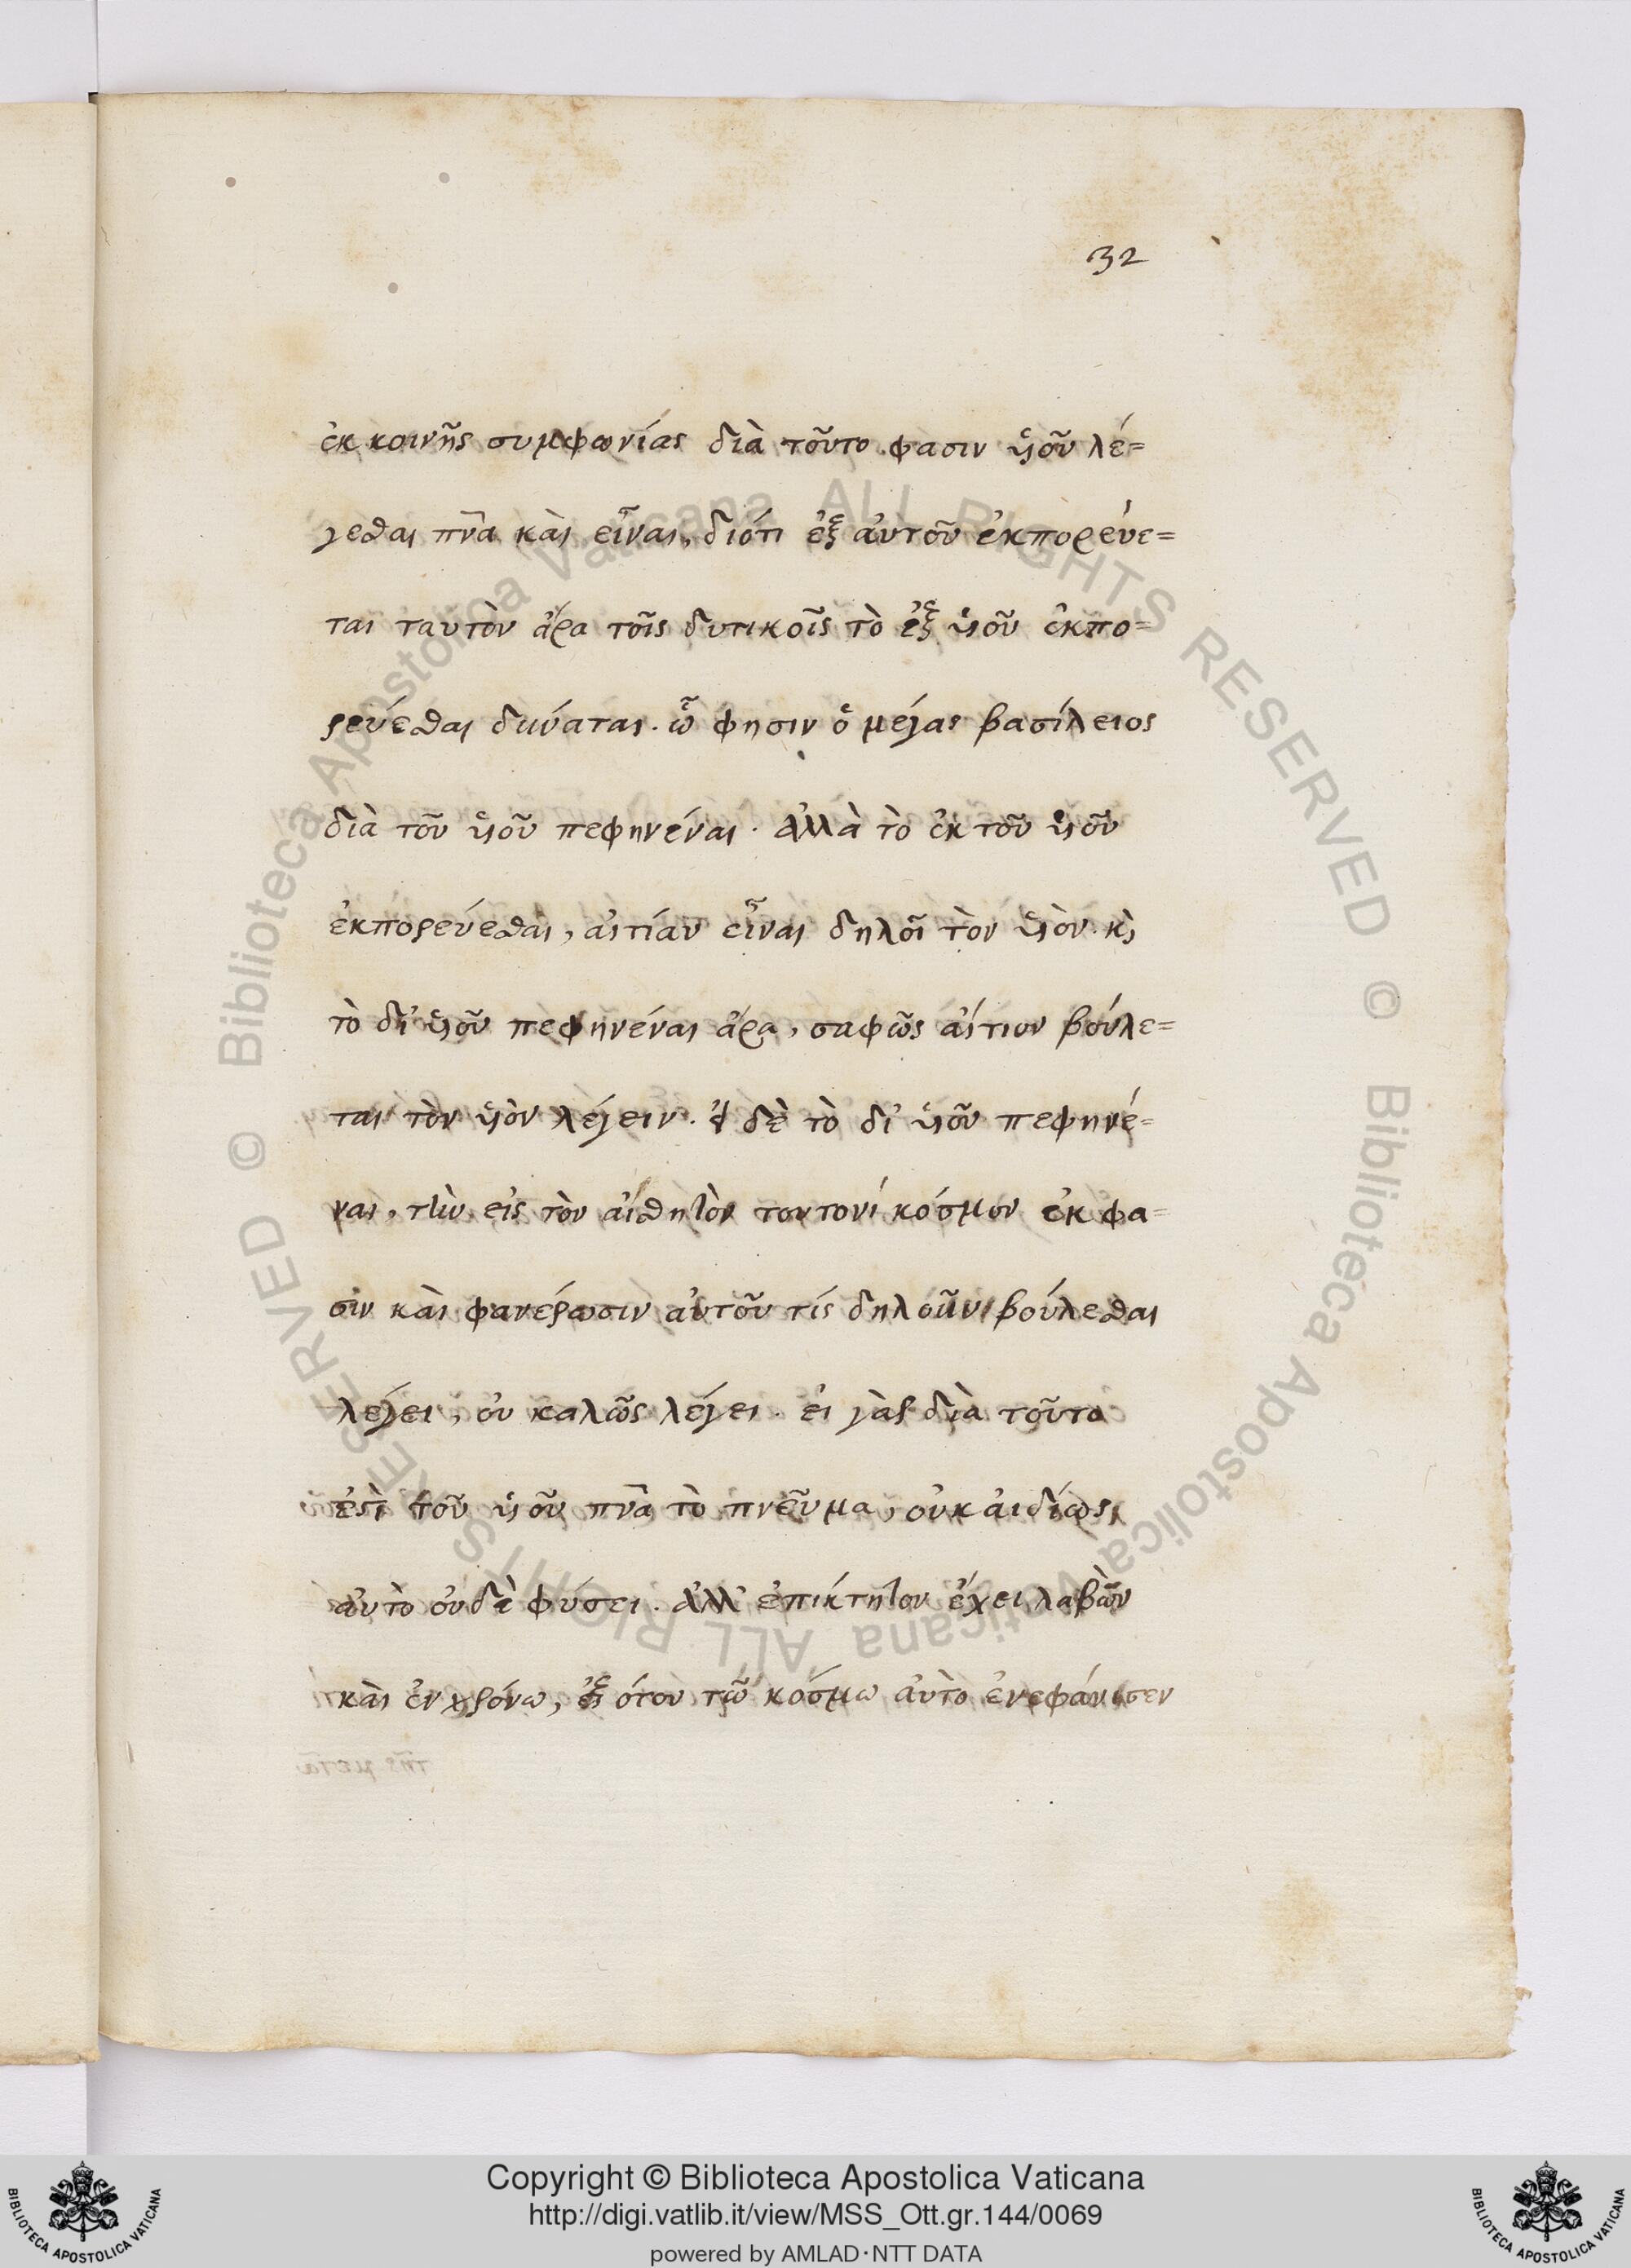 32
ἐκ κοινῆς συμφωνίας διὰ τοῦτο φασιν ὑιοῦ λέ=
γεσθαι πν̅α καὶ εἶναι, διότι ἐξ αὐτοῦ ἐκπορεύε=
ται ταυτὸν ἄρα τοῖς δυτικοῖς τὸ ἐξ ὑιοῦ ἐκπο=
ρεύεσθαι δύναται. ὧ φησιν ὁ μέγας βασίλειος
διὰ τοῦ ὑιοῦ πεφηνέναι. ἀλλὰ τὸ ἐκ τοῦ ὑιοῦ
ἐκπορεύεσθαι, αἰτίαν εἶναι δηλοῖ τὸν ὑιὸν. κὶ
τὸ δι' ὑιοῦ πεφηνέναι ἄρα, σαφῶς αἴτιον βούλε=
ται τὸν ὑιὸν λέγειν. εἰ δὲ τὸ δι' ὑιοῦ πεφηνέ=
ναι, τὴν εἰς τὸν αἰσθητὸν τουτονί κόσμον ἐκφα=
σιν καὶ φανέρωσιν αὐτοῦ τίς δηλοῦν βούλεσθαι
λέγει, οὐ καλῶς λέγει. εἰ γὰρ διὰ τοῦτο
ἐστὶ τοῦ ὑιοῦ πν̅α τὸ πνεῦμα, οὐκ ἀιδίως
αὐτὸ οὐδὲ φύσει. ἀλλ' ἐπίκτητον ἔχει λαβὼν
καὶ ἐν χρόνω, ἐξ ὅτου τῶ κόσμω αὐτὸ ἐνεφάνισεν
Copyright © Biblioteca Apostolica Vaticana
http://digi.vatlib.it/view/MSS_Ott.gr.144/0069
powered by AMLAD·NTT DATA
BIBLIOTECA APOSTOLICA VATICANA
BIBLIOTECA APOSTOLICA VATICANA
© Biblioteca Apostolica Vaticana ALL RIGHTS RESERVED
© Biblioteca Apostolica Vaticana ALL RIGHTS RESERVED